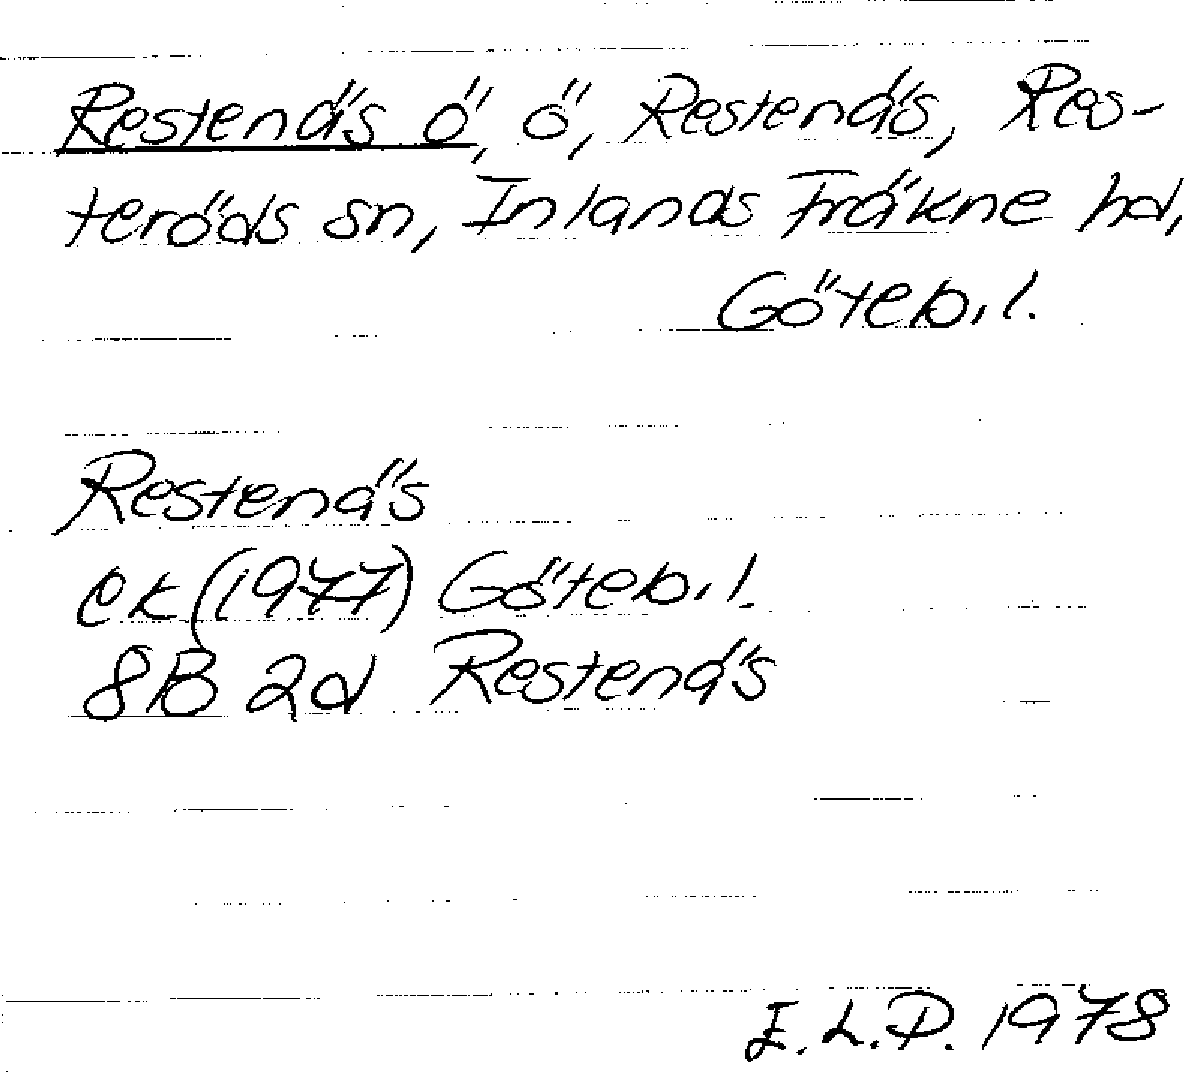 Restenäs ö, ö, Restenäs, Res-
teröds sn, Inlands Fräkne hd,
Göteb.l.
Restenäs
ek (1977) Göteb.l.
8B 2d Restenäs
E.L.P. 1978